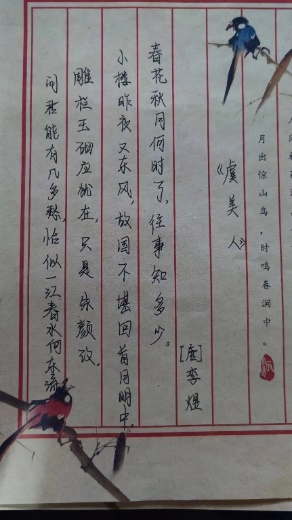 月出惊山鸟，时鸣春涧中。
《虞美人》
[唐]李煜
春花秋月何时了，往事知多少。
小楼昨夜又东风，故国不堪回首月明中.
雕栏玉砌应犹在，只是朱颜改.
问君能有几多愁恰似一江春水向东流